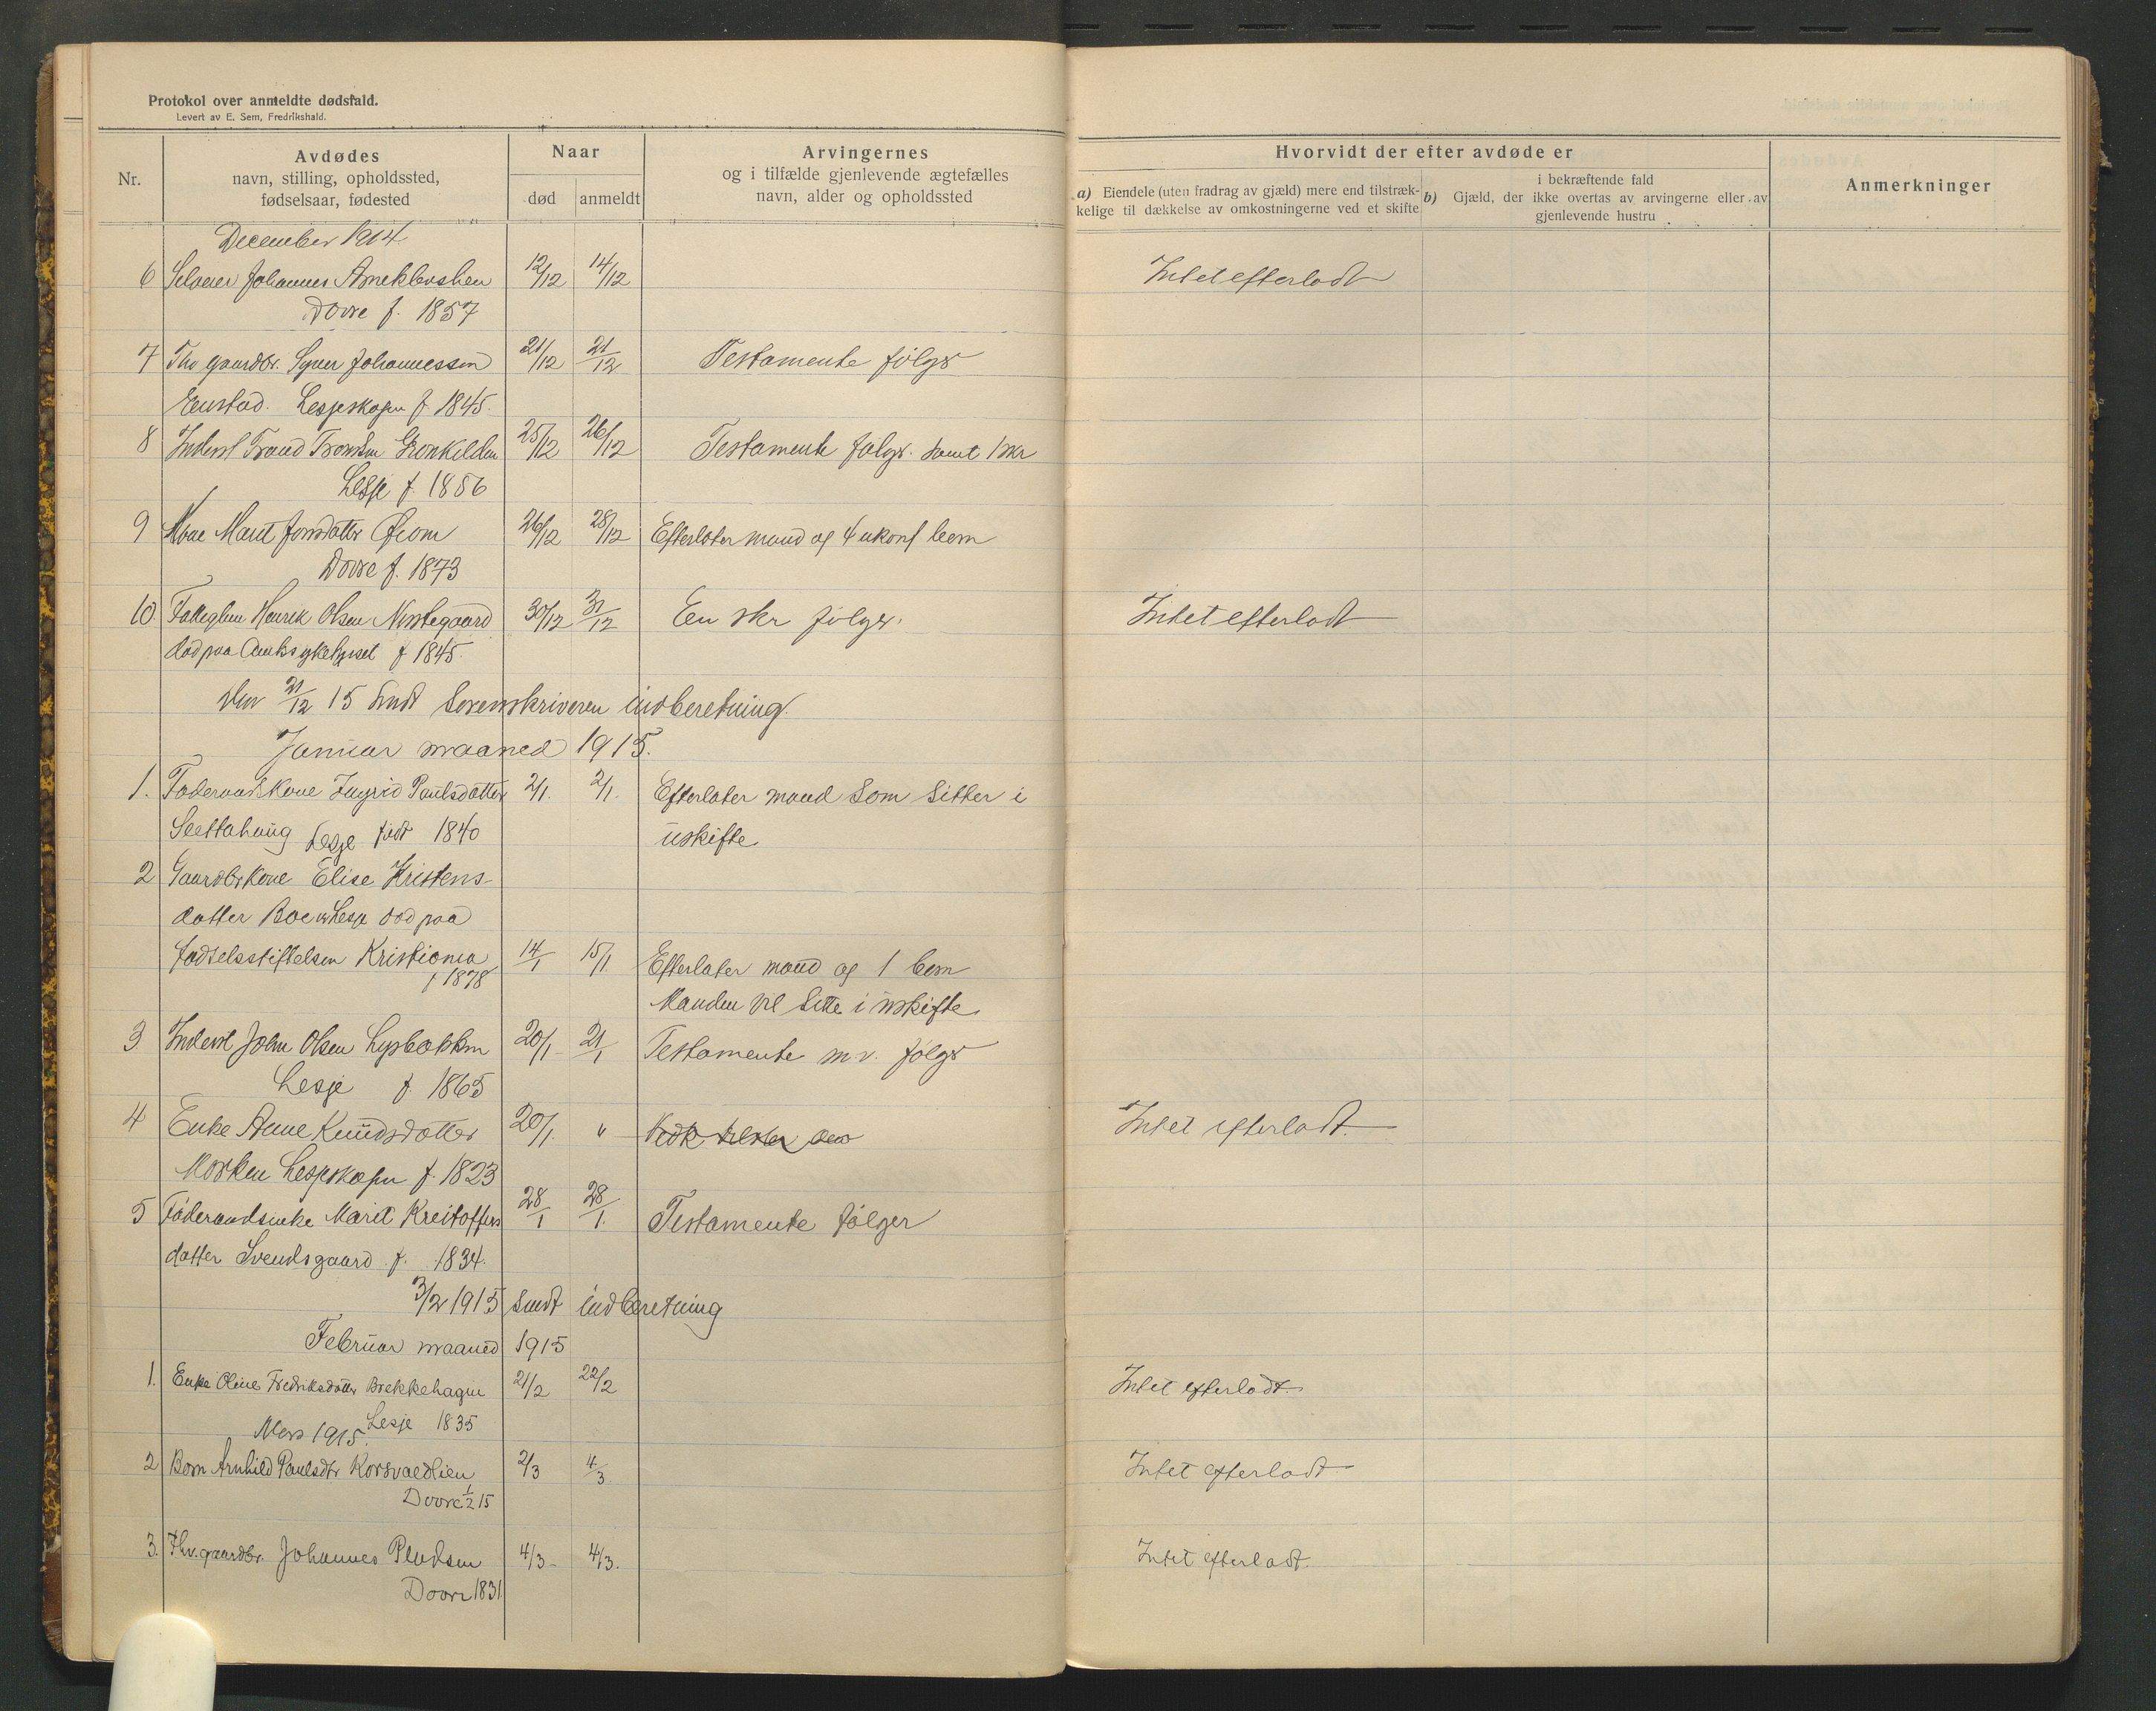 Protokol over anmeldte dødsfald.
Levert av E. Sem, Fredrikshald.
Nr.
Avdødes
navn, stilling, opholdssted,
fødselsaar, fødested
Naar
død
anmeldt
Arvingernes
og i tilfælde gjenlevende ægtefælles
navn, alder og opholdssted
Hvorvidt der efter avdøde er
a) Eiendele (uten fradrag av gjæld) mere end tilstræk-
kelige til dækkelse av omkostningerne ved et skifte
b) i bekræftende fald
Gjæld, der ikke overtas av arvingerne eller av
gjenlevende hustru
Anmerkninger
December 1914.
6 Johannes 12/12 14/12 Intet efterladt
Dovre f. 1857
7 Fhv gaardbr. Syver Johannessen 21/12 21/12 Testamente følger
Enstad. Lesjeskogen f. 1845.
8 Inderst Trond Trondsen 25/12 26/12 Testamente følger. samt 1 skr
Lesje f. 1856
9 Kone Marit Jonsdatter 26/12 28/12 Efterlater mand og 4 ukonf børn
Dovre f. 1873
10 Fatteglem Henrik Olsen Nistegaard 30/12 31/12 En skr følger. Intet efterladt
død paa Amtssykehuset f 1845.
Den 31/12 15 sendt Sorenskriveren indberetning.
Januar maaned 1915.
1. Føderaadskone Ingrid Paulsdatter 2/1. 2/1. Efterlater mand som sitter i
Lesje født 1840 uskifte
2 Gaardbrkone Elise Kristens
datter Boe Lesje død paa
fødselsstiftelsen Kristiania 14/1 15/1 Efterlater mand og 1 barn
f 1878
Manden vil sitte i uskifte
3. Inderst John Olsen Lysbakken 20/1 21/1 Testamente m.v. følger
Lesje f. 1865
4 Enke Anne Knudsdatter 20/1. " Intet efterladt.
Morken Lesjeskogen f. 1823
5 Føderaadsenke Marit Kristoffers 28/1 28/1. Testamente følger
datter Svendsgaard f. 1834.
3/2 1915 sendt indberetning
Februar maaned 1915
1. Enke Oline Fredriksdatter Brekkehagen 21/2 22/2 Intet efterladt.
Lesje 1835
Mars 1915.
2 Barn Arnhild Paulsdtr Korsvaedlien 2/3 4/3 Intet efterladt
Dovre 1/2 15
3. Fhv. gaardbr. Johannes 4/3 4/3. Intet efterladt.
Dovre 1831